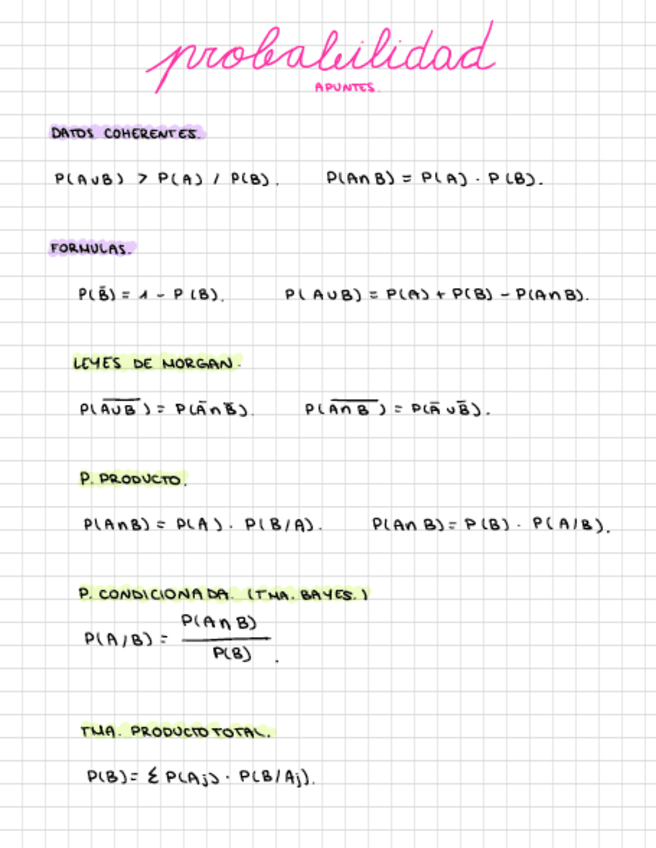 probabilidad
APUNTES.
DATOS COHERENTES.
P(A∪B) > P(A) / P(B). P(A∩B) = P(A) · P(B).
FORMULAS.
P(B̄) = 1 - P(B). P(A∪B) = P(A) + P(B) - P(A∩B).
LEYES DE MORGAN.
P(A̅∪̅B̅) = P(Ā∩B̄). P(A̅∩̅B̅) = P(Ā∪B̄).
P. PRODUCTO.
P(A∩B) = P(A) · P(B/A). P(A∩B) = P(B) · P(A/B).
P. CONDICIONADA. (TMA. BAYES.)
P(A/B) = P(A∩B) / P(B).
TMA. PRODUCTO TOTAL.
P(B) = Σ P(Aj) · P(B/Aj).